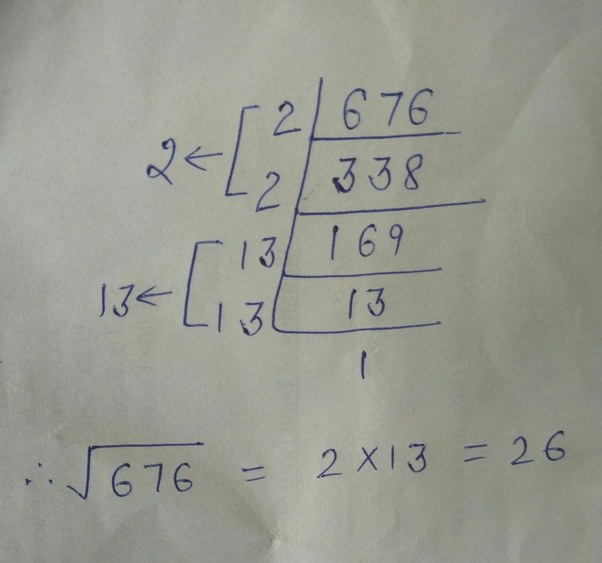 2 ← [ 2 | 676
2 | 338
13 ← [ 13 | 169
13 | 13
1
∴ √676 = 2 × 13 = 26